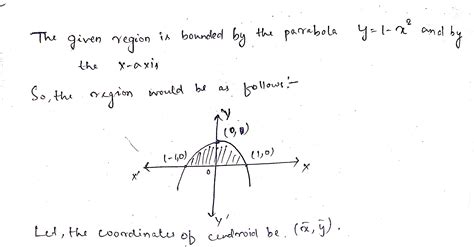 The given region is bounded by the parabola y = 1 - x² and by
the x-axis
So, the region would be as follows:-
y
(0, 1)
(-1,0)
(1,0)
x'
0
x
y'
Let, the coordinates of centroid be (x̄, ȳ).